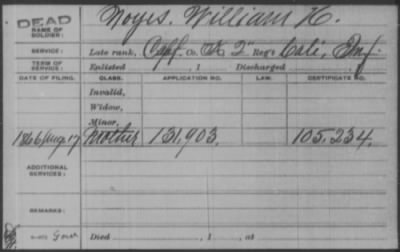 DEAD
NAME OF SOLDIER: Noyes, William H.
SERVICE: Late rank, Co. K, 2" Reg't Cali. Inf.
TERM OF SERVICE: Enlisted , 1 Discharged , 1
DATE OF FILING. CLASS. APPLICATION NO. LAW. CERTIFICATE NO.
Invalid,
Widow,
Minor,
1866 Aug. 17 Mother 131,903. 105,234.
ADDITIONAL SERVICES:
REMARKS:
Died , 1 , at